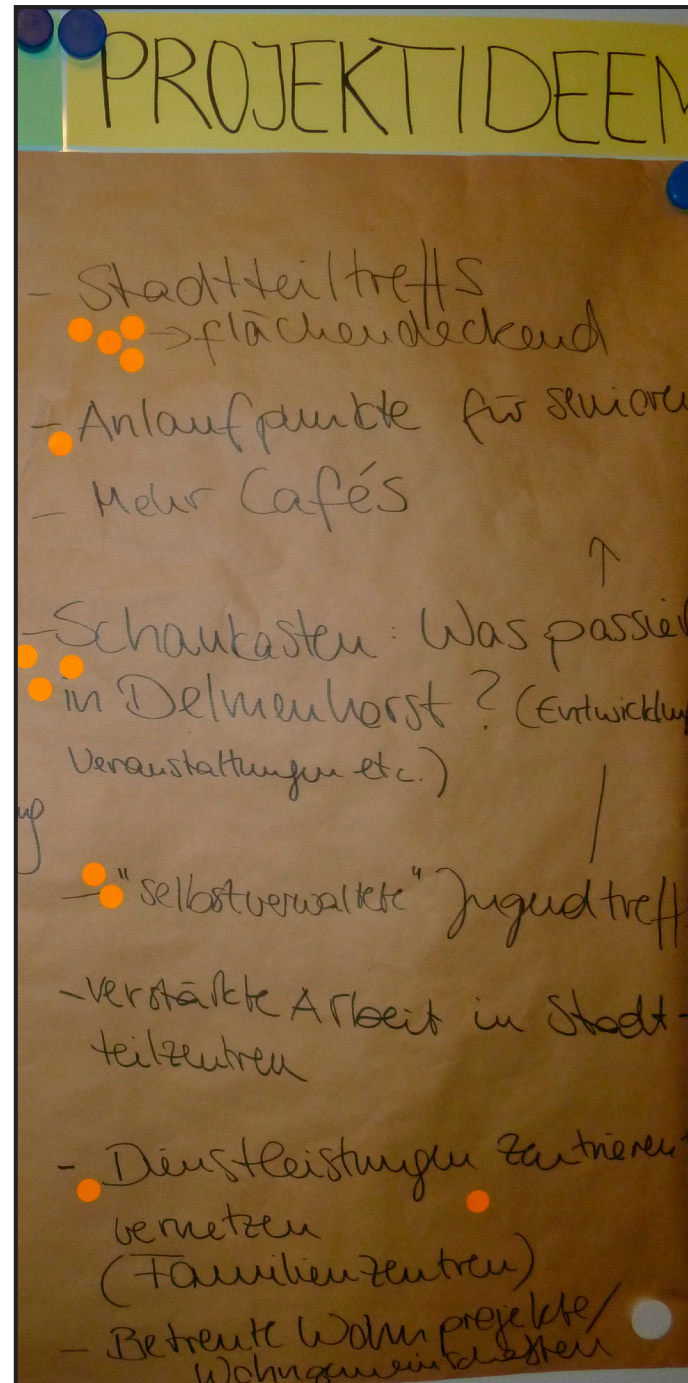 PROJEKTIDEEN
- Stadtteiltreffs
→ flächendeckend
- Anlaufpunkte für Senioren
- Mehr Cafés
- Schaukasten: Was passier
in Delmenhorst? (Entwicklung
Veranstaltungen etc.)
- "selbstverwaltete" Jugendtreffs
- verstärkte Arbeit in Stadt-
teilzentren
- Dienstleistungen zentrieren +
vernetzen
(Familienzentren)
- Betreute Wohnprojekte/
Wohngemeinschaften